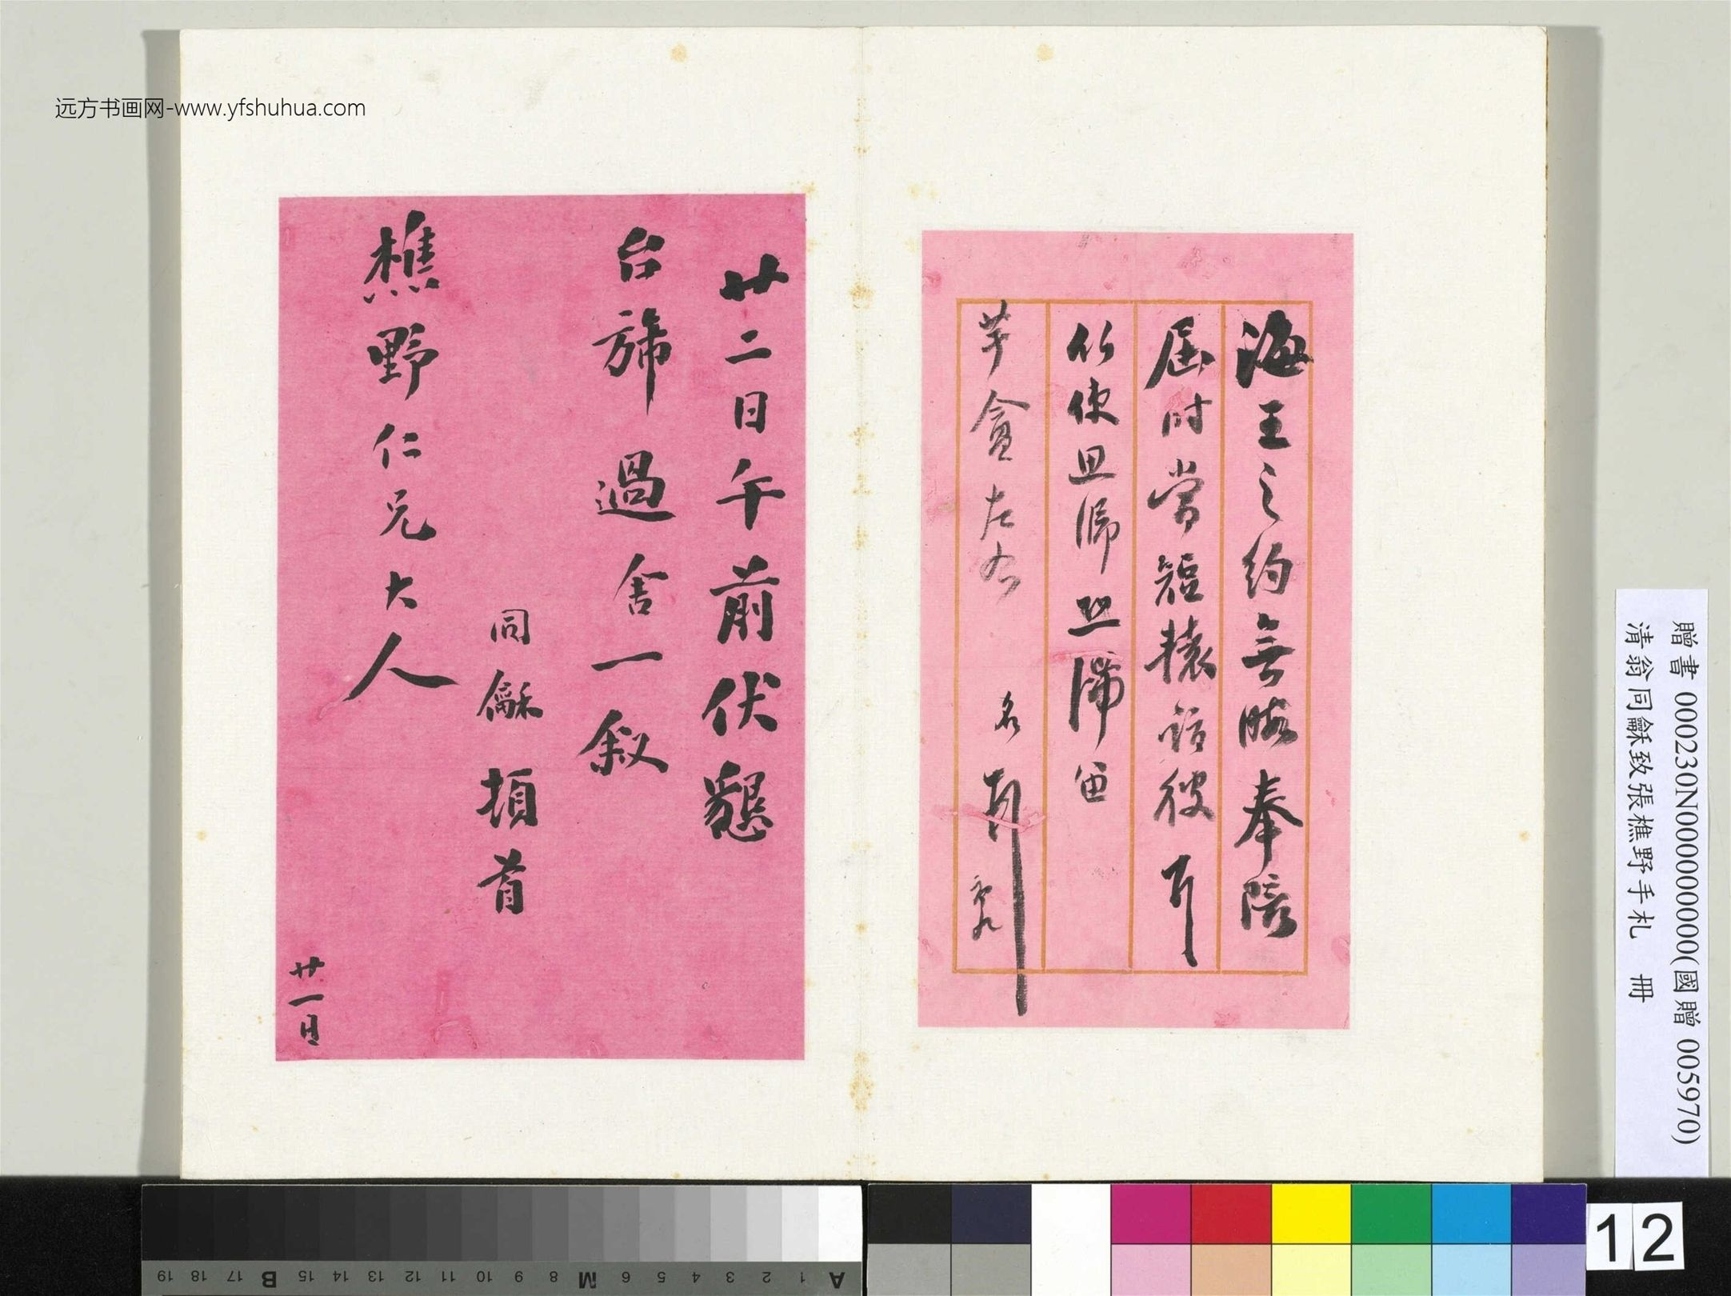 远方书画网-www.yfshuhua.com
海王之約無暇奉陪
届时当短轅詣彼耳
似使且歸且滯
左右
名 頓首
廿二日午前伏懇
台旆過舍一叙
同龢頓首
樵野仁兄大人
廿一日
贈書 000230N000000000(國贈 005970)
清翁同龢致張樵野手札 冊
12
A 1 2 3 4 5 6 M 8 9 10 11 12 13 14 15 B 17 18 19